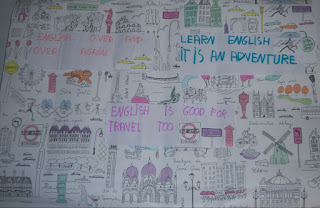 ENGLISH OVER AND
OVER AGAIN
LEARN ENGLISH
IT IS AN ADVENTURE
ENGLISH IS GOOD FOR
TRAVEL TOO